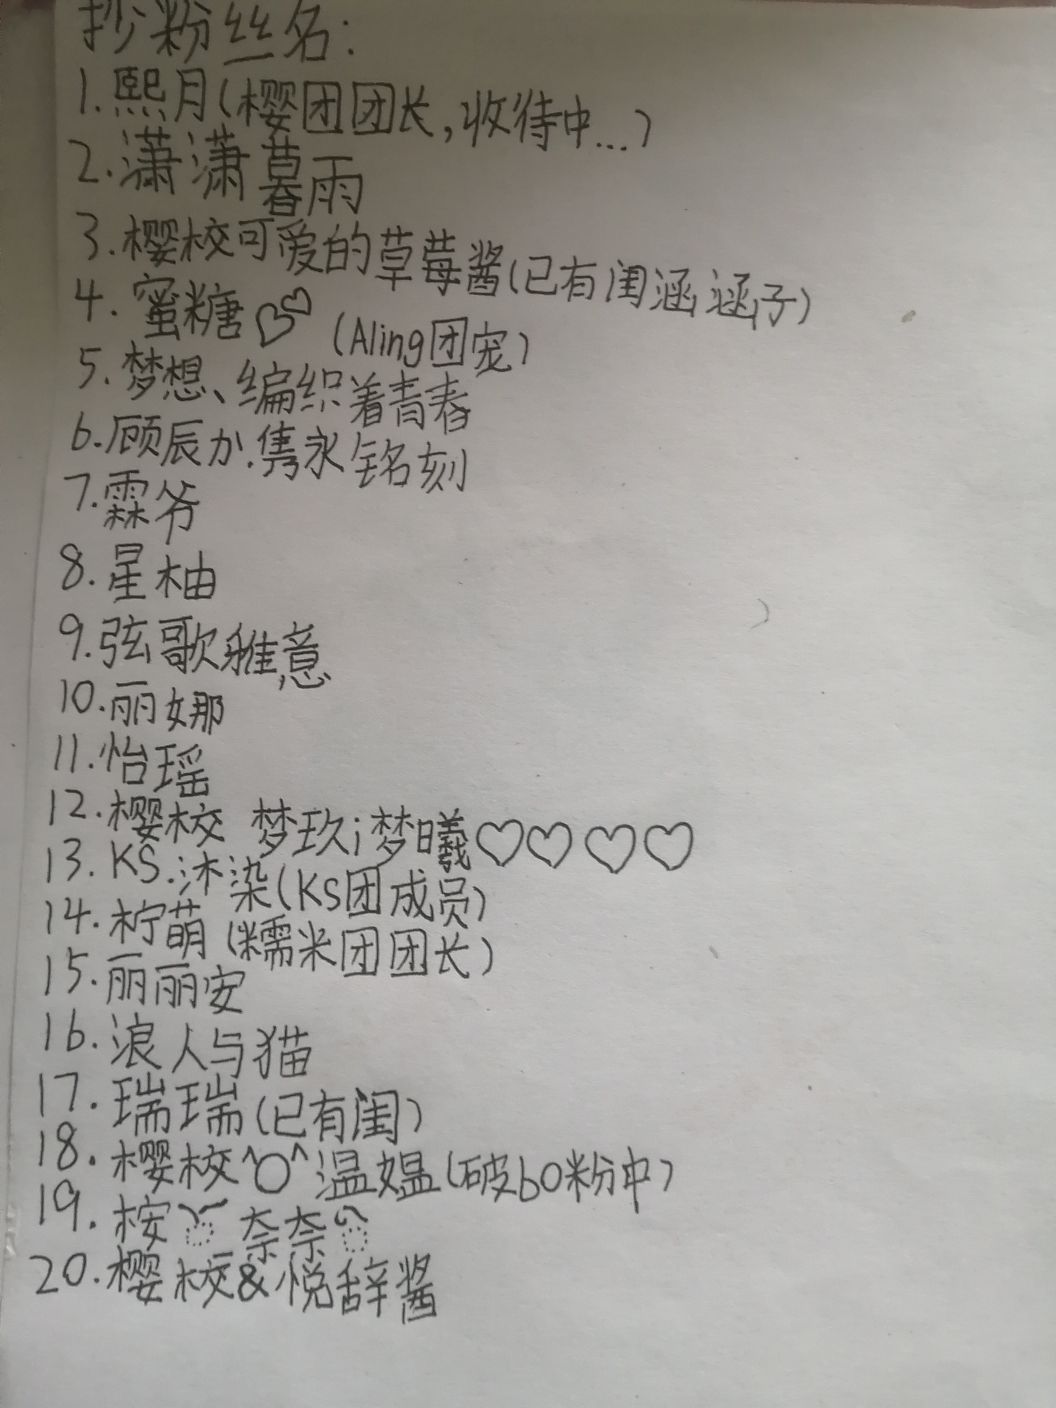 抄粉丝名:
1.熙月(樱团团长,收待中...)
2.潇潇暮雨
3.樱校可爱的草莓酱(已有闺涵涵子)
4.蜜糖♡♡(Aling团宠)
5.梦想、编织着青春
6.顾辰か.隽永铭刻
7.霖爷
8.星柚
9.弦歌雅意
10.丽娜
11.怡瑶
12.樱校 梦玖i梦曦♡♡♡♡
13.KS.沐染(KS团成员)
14.柠萌(糯米团团长)
15.丽丽安
16.浪人与猫
17.瑞瑞(已有闺)
18.樱校^O^温媪(破60粉中)
19.桉 奈奈
20.樱校&悦辞酱